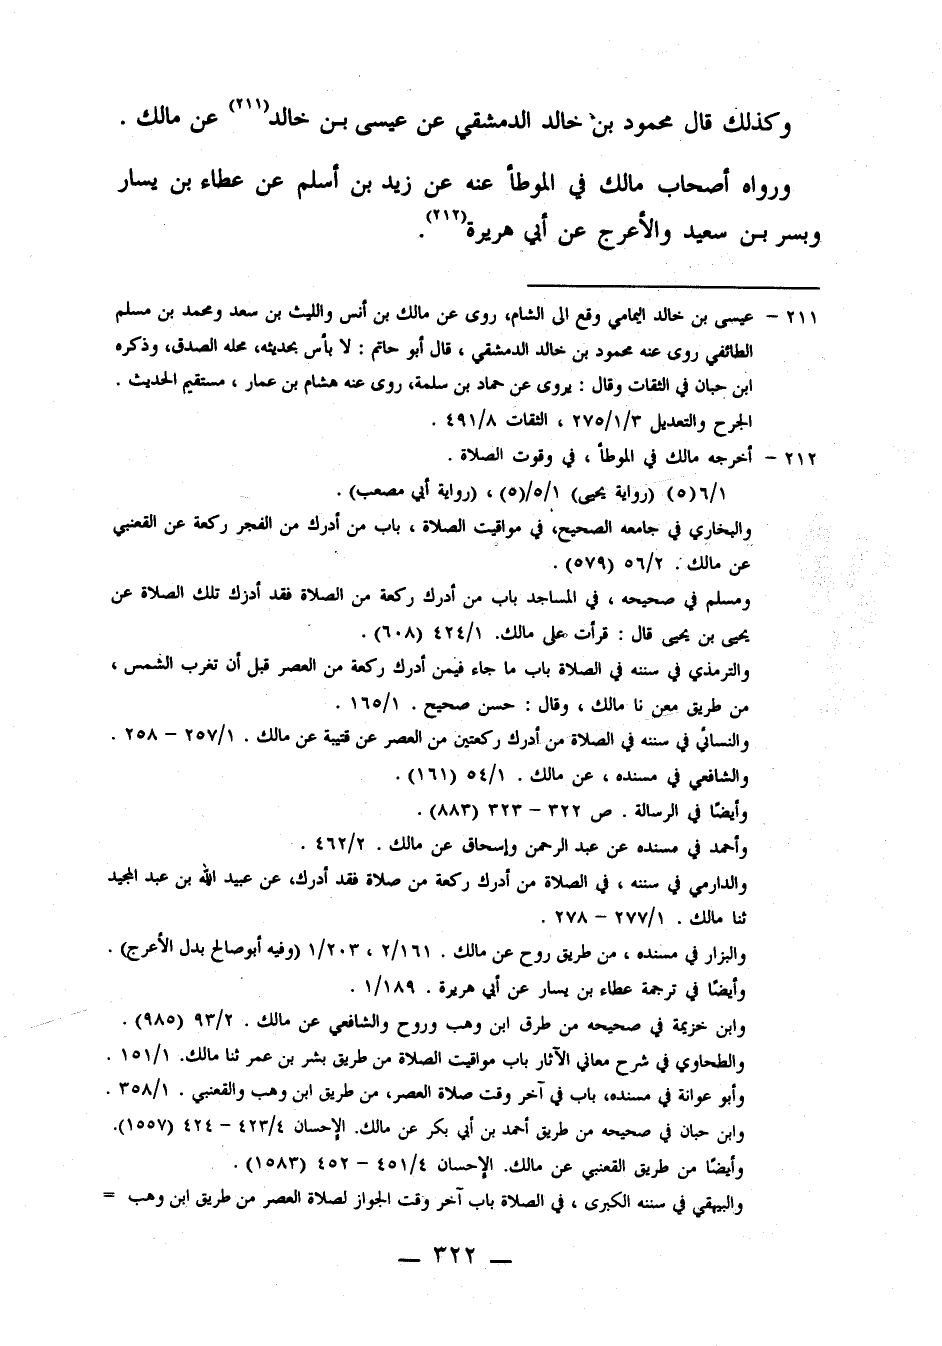 وكذلك قال محمود بن خالد الدمشقي عن عيسى بـن خالد(٢١١) عن مالك .
ورواه أصحاب مالك في الموطأ عنه عن زيد بن أسلم عن عطاء بن يسار
وبسر بـن سعيد والأعرج عن أبي هريرة(٢١٢).
٢١١ – عيسى بن خالد اليمامي وقع الى الشام، روى عن مالك بن أنس والليث بن سعد ومحمد بن مسلم
الطائفي روى عنه محمود بن خالد الدمشقي ، قال أبو حاتم : لا بأس بحديثه، محله الصدق، وذكره
ابن حبان في الثقات وقال : يروى عن حماد بن سلمة، روى عنه هشام بن عمار ، مستقيم الحديث .
الجرح والتعديل ٢٧٥/١/٣ ، الثقات ٤٩١/٨ .
٢١٢ – أخرجه مالك في الموطأ ، في وقوت الصلاة .
٦/١(٥) (رواية يحيى) ٥/١/(٥) ، (رواية أبي مصعب) .
والبخاري في جامعه الصحيح، في مواقيت الصلاة ، باب من أدرك من الفجر ركعة عن القعنبي
عن مالك . ٥٦/٢ (٥٧٩) .
ومسلم في صحيحه ، في المساجد باب من أدرك ركعة من الصلاة فقد أدرك تلك الصلاة عن
يحيى بن يحيى قال : قرأت على مالك. ٤٢٤/١ (٦٠٨) .
والترمذي في سننه في الصلاة باب ما جاء فيمن أدرك ركعة من العصر قبل أن تغرب الشمس ،
من طريق معن نا مالك ، وقال : حسن صحيح . ١٦٥/١ .
والنسائي في سننه في الصلاة من أدرك ركعتين من العصر عن قتيبة عن مالك . ٢٥٧/١ – ٢٥٨ .
والشافعي في مسنده ، عن مالك . ٥٤/١ (١٦١) .
وأيضًا في الرسالة . ص ٣٢٢ – ٣٢٣ (٨٨٣) .
وأحمد في مسنده عن عبد الرحمن وإسحاق عن مالك . ٤٦٢/٢ .
والدارمي في سننه ، في الصلاة من أدرك ركعة من صلاة فقد أدرك، عن عبيد الله بن عبد المجيد
ثنا مالك . ٢٧٧/١ – ٢٧٨ .
والبزار في مسنده ، من طريق روح عن مالك . ٢/١٦١ ، ١/٢٠٣ (وفيه أبوصالح بدل الأعرج) .
وأيضًا في ترجمة عطاء بن يسار عن أبي هريرة . ١/١٨٩ .
وابن خزيمة في صحيحه من طرق ابن وهب وروح والشافعي عن مالك . ٩٣/٢ (٩٨٥) .
والطحاوي في شرح معاني الآثار باب مواقيت الصلاة من طريق بشر بن عمر ثنا مالك. ١٥١/١ .
وأبو عوانة في مسنده، باب في آخر وقت صلاة العصر، من طريق ابن وهب والقعنبي . ٣٥٨/١ .
وابن حبان في صحيحه من طريق أحمد بن أبي بكر عن مالك. الإحسان ٤٢٣/٤ – ٤٢٤ (١٥٥٧).
وأيضًا من طريق القعنبي عن مالك. الإحسان ٤٥١/٤ – ٤٥٢ (١٥٨٣) .
والبيهقي في سننه الكبرى ، في الصلاة باب آخر وقت الجواز لصلاة العصر من طريق ابن وهب =
– ٣٢٢ –